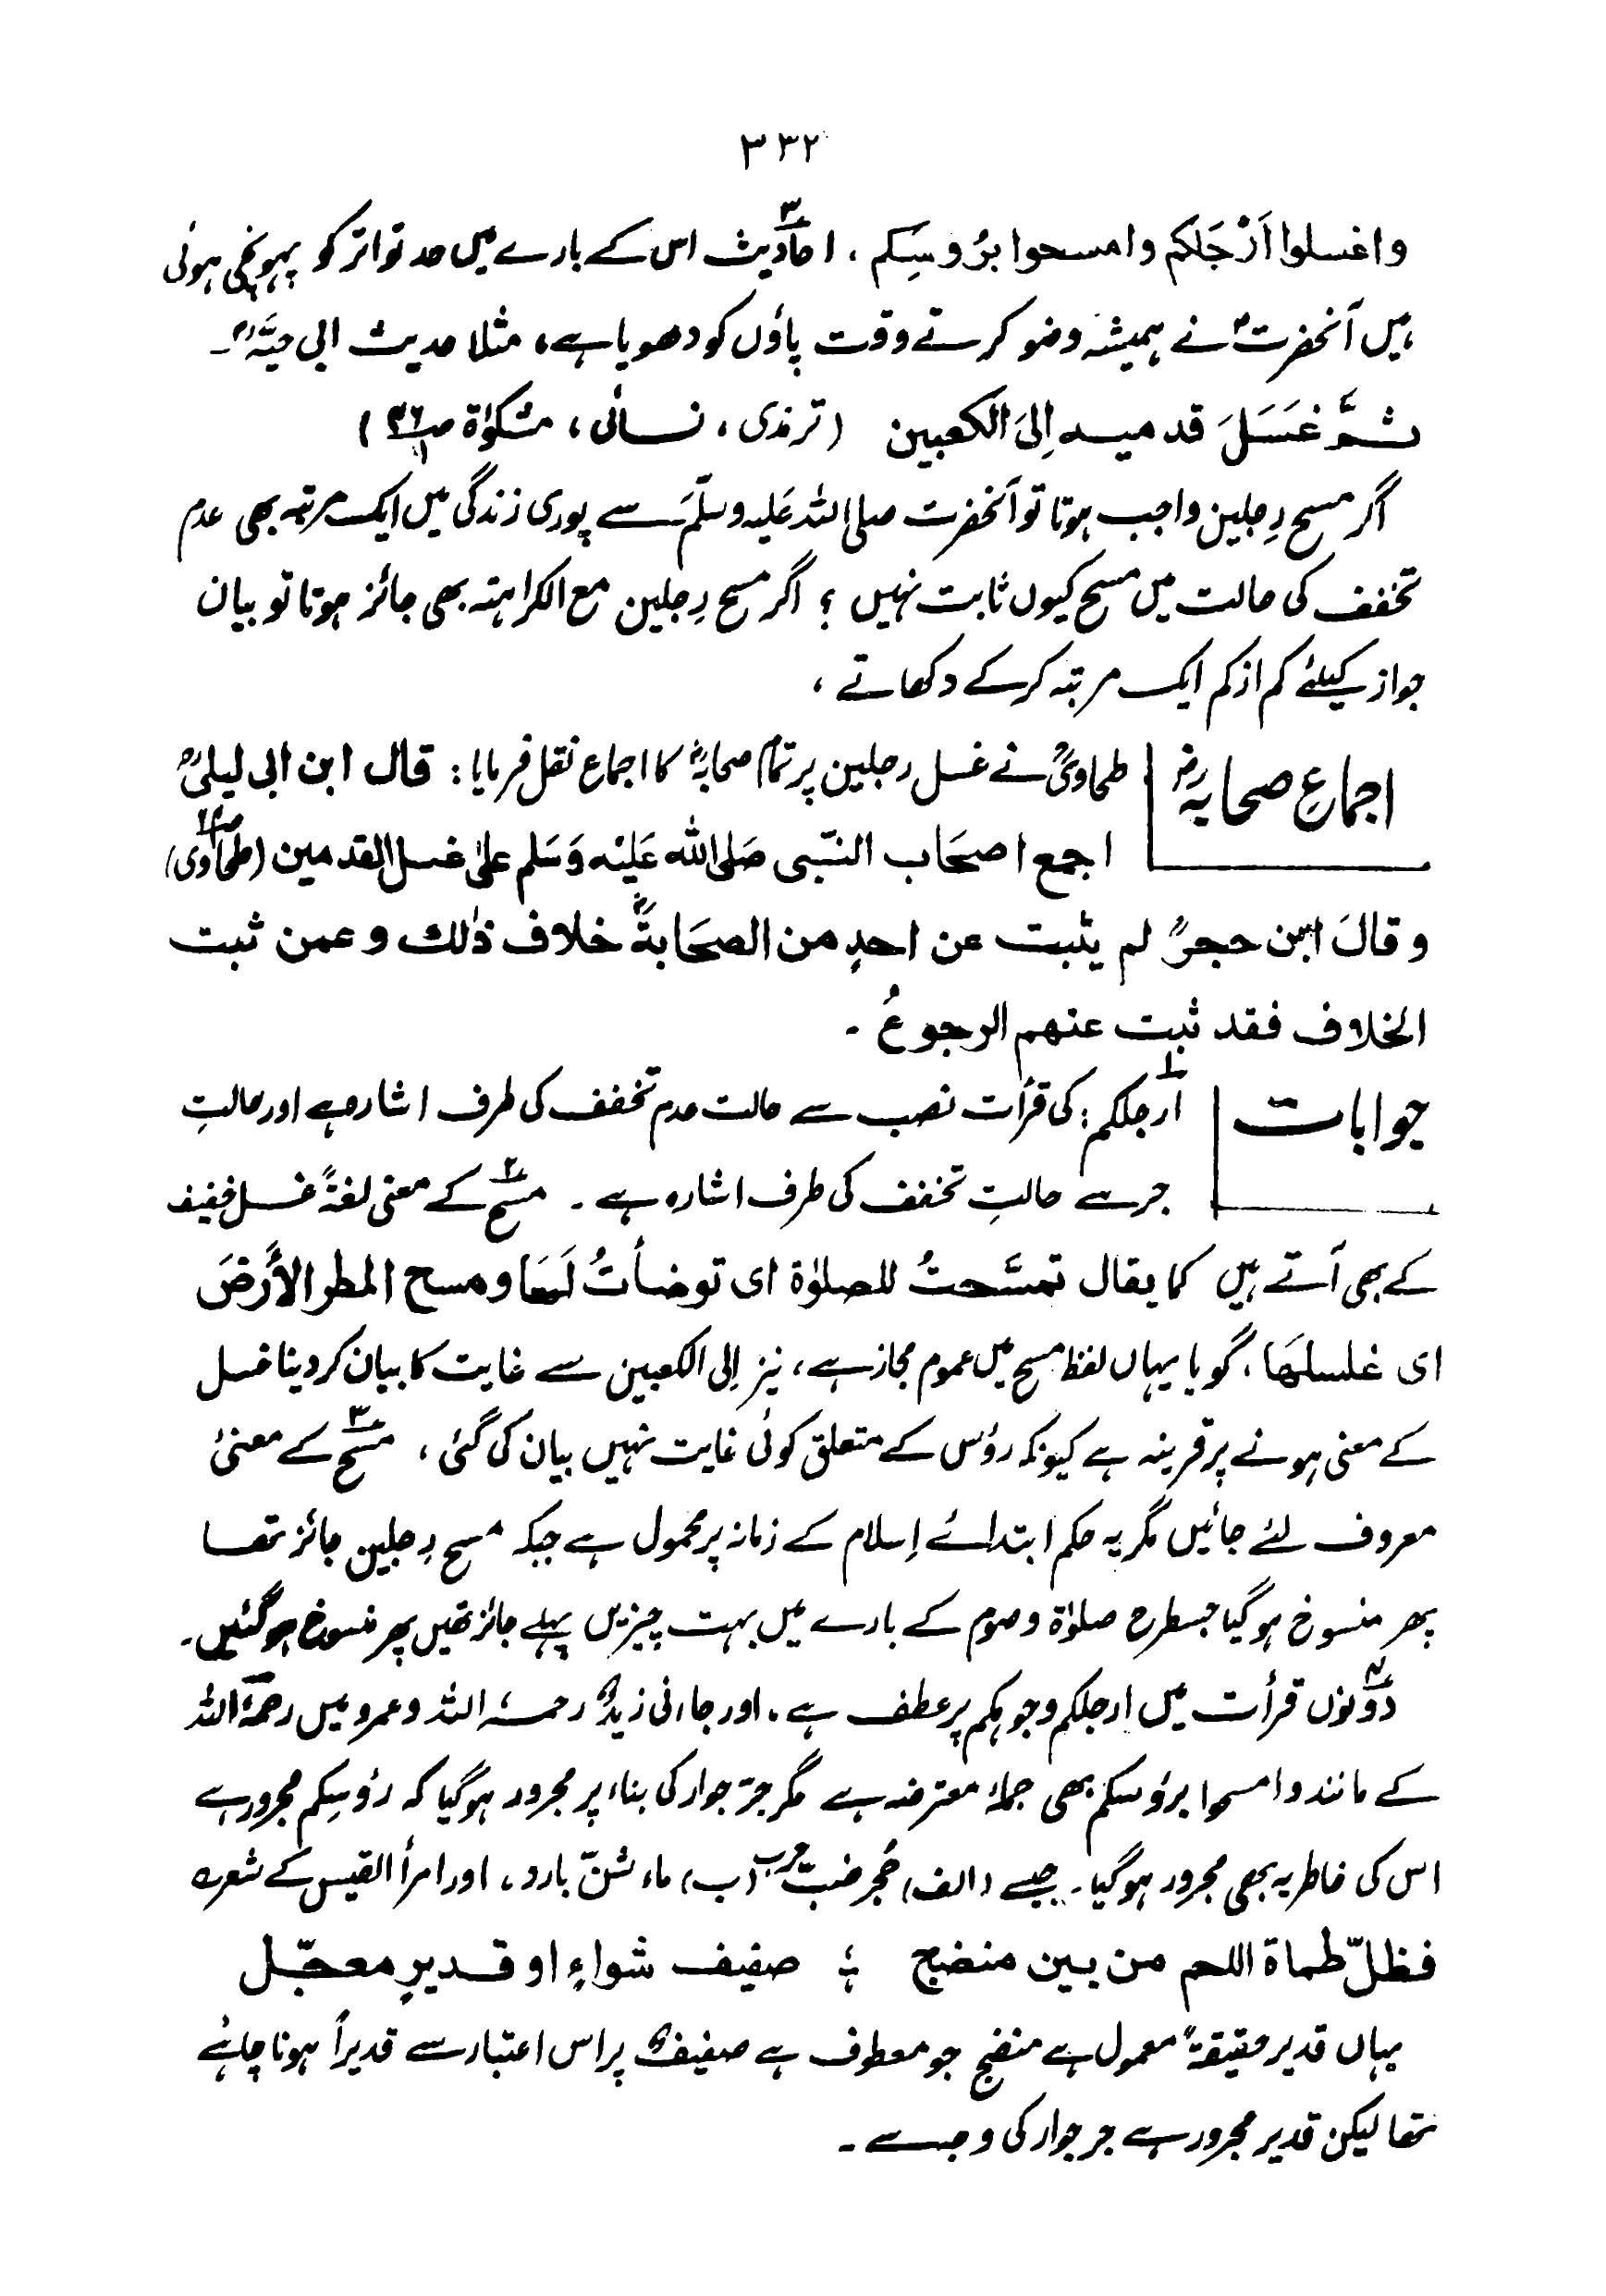 ۳۳۲
واغسلوا اَرْجَلکم وامسحوا برُوسِکم ، احادیث اس کے بارے میں حد تواتر کو پہونچی ہوئی
ہیں آنخضرتؐ نے ہمیشہ وضو کرتے وقت پاؤں کو دھویا ہے، مثلا حدیث ابی حیَّہؓ ۔
ثمَّ غَسَلَ قدمیہ اِلیَ الکعبین (ترمذی ، نسائی ، مشکوٰۃ ص۴۶)
اگر مسح رِجلین واجب ہوتا تو آنخضرت صلی اللہ عَلیہ وسلّمَ سے پوری زندگی میں ایک مرتبہ بھی عدم
تخفف کی حالت میں مسح کیوں ثابت نہیں ؟ اگر مسح رِجلین مع الکراہتہ بھی جائز ہوتا تو بیان
جواز کیلئے کم از کم ایک مرتبہ کرکے دکھاتے ،
اجماعِ صحابہ رضؓ طحاویؒ نے غسل رجلین پر تمام صحابہؓ کا اجماع نقل فرمایا : قال ابن ابی لیلیٰؒ
اجمع اصحَاب النّبی صَلی اللہ عَلیْہ وَسَلم علیٰ غسل القدمین (طحاوی)
وقالَ ابن حجرؒ لم یثبت عن احدٍ من الصحَابةؓ خلاف ذٰلک وعمن ثبت
الخلاف فقد ثبت عنھم الرجوعُ ۔
جوابات ۱ ارجلکم : کی قرأت نصب سے حالت عدم تخفف کی طرف اشارہ ہے اور حالتِ
جر سے حالتِ تخفف کی طرف اشارہ ہے ۔ ۲ مسح کے معنی لغۃً غسل خفیف
کے بھی آتے ہیں کما یقال تمسَّحتُ للصلوٰۃ ای توضأتُ لَھَا ومسح المطر الأرضَ
ای غلسلھَا ، گویا یہاں لفظ مسح میں عموم مجاز ہے ، نیز اِلی الکعبین سے غایت کا بیان کردینا غسل
کے معنی ہونے پر قرینہ ہے کیونکہ رؤس کے متعلق کوئی غایت نہیں بیان کی گئی ، ۳ مسح کے معنیٰ
معروف لئے جائیں مگر یہ حکم ابتدائے اِسلام کے زمانہ پر محمول ہے جبکہ مسح رِجلین جائز تھا
پھر منسوخ ہوگیا جسطرح صلوٰۃ وصوم کے بارے میں بہت چیزیں پہلے جائز تھیں پھر منسوخ ہوگئیں ۔
۴ دونوں قرأت میں ارجلکم وجوہکم پر عطف ہے ، اور جائنی زیدٌ رحمہٗ اللہ وعمرو میں رحمہٗ اللہ
کے مانند وامسحوا برؤسکم بھی جملۂ معترضہ ہے مگر جرّ جوار کی بناء پر مجرور ہوگیا کہ رؤسِکم مجرور ہے
اس کی خاطر یہ بھی مجرور ہوگیا ۔ جیسے (الف) حُجر ضبٍّ خربٍ (ب) ماء شنّ بارد ، اور امرأ القیس کے شعرہ
فظلّ طہاۃ اللحم من بین منضج ؛ صفیف شواءٍ او قدیرٍ معجّل
یہاں قدیر حقیقۃً معمول ہے منضج جو معطوف ہے صفیفٌ پر اس اعتبار سے قدیراً ہونا چاہئے
تھا لیکن قدیر مجرور ہے جر جوار کی وجہ سے ۔